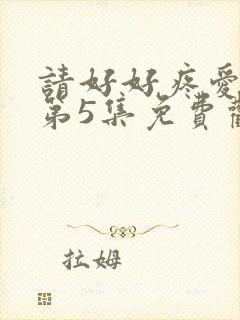 請好好疼愛
第5集免費
拉姆